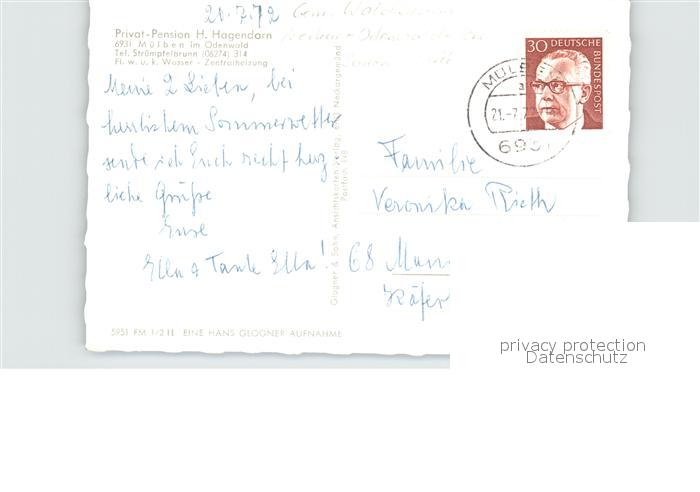 21.7.72
Privat-Pension H. Hagendorn
6931 Mülben im Odenwald
Tel. Strümpfelbrunn (06274) 314
Fl. w. u. k. Wasser - Zentralheizung
Meine 2 Lieben, bei
herrlichem Sommerwetter
sende ich Euch recht herz
liche Grüße
Eure
Ella + Tante Ella!
5951 FM 1/2 H EINE HANS GLOGNER AUFNAHME
Glogner & Sohn, Ansichtskarten-Verlag, Neckargemünd
Postfach
30 DEUTSCHE
BUNDESPOST
21.-7.7
6931
Familie
Veronika Rieth
68 Mann
Käfer
privacy protection
Datenschutz